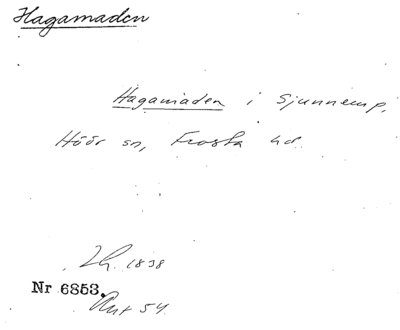 Hagamaden
Hagamaden i Sjunnerup,
Höör sn, Frosta hd
Lh. 1838
Nr 6853.
Akt 54